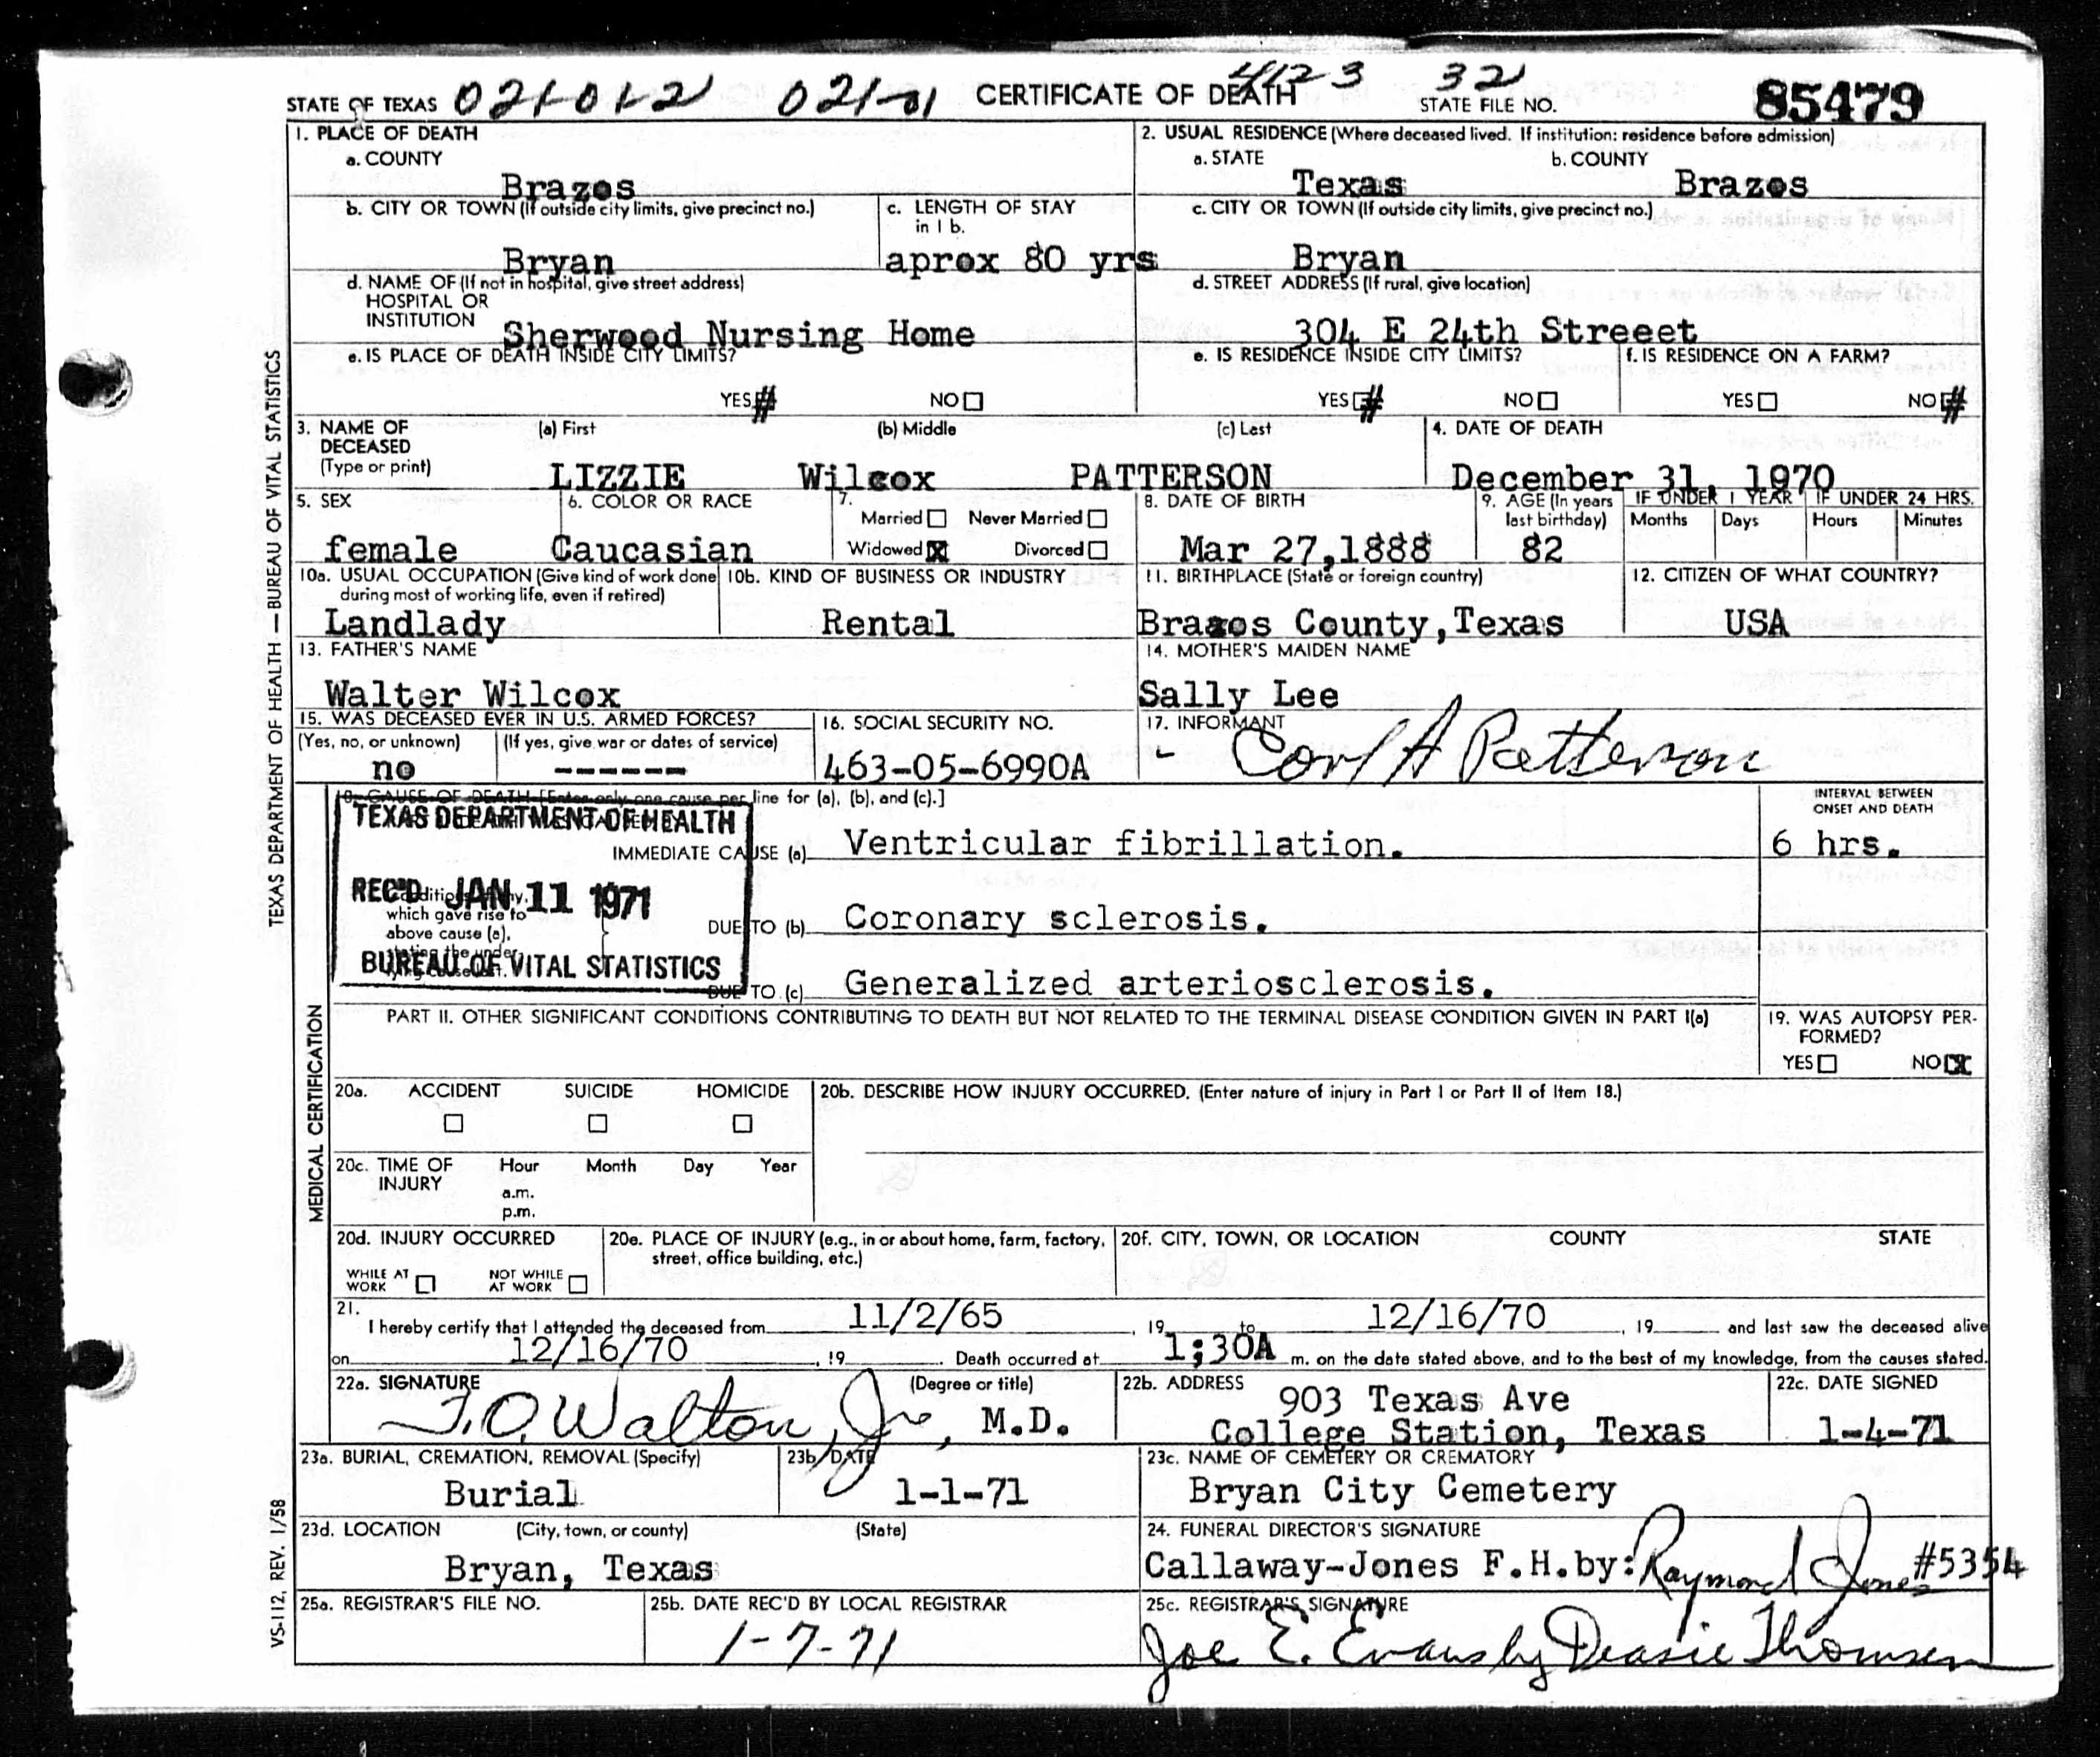 STATE OF TEXAS 021012 021-01 CERTIFICATE OF DEATH 4123 32 STATE FILE NO. 85479
1. PLACE OF DEATH
a. COUNTY
Brazos
b. CITY OR TOWN (If outside city limits, give precinct no.)
Bryan
c. LENGTH OF STAY in 1 b.
aprox 80 yrs
d. NAME OF (If not in hospital, give street address)
HOSPITAL OR
INSTITUTION
Sherwood Nursing Home
e. IS PLACE OF DEATH INSIDE CITY LIMITS?
YES # NO
2. USUAL RESIDENCE (Where deceased lived. If institution: residence before admission)
a. STATE
Texas
b. COUNTY
Brazos
c. CITY OR TOWN (If outside city limits, give precinct no.)
Bryan
d. STREET ADDRESS (If rural, give location)
304 E 24th Streeet
e. IS RESIDENCE INSIDE CITY LIMITS?
YES # NO
f. IS RESIDENCE ON A FARM?
YES NO #
3. NAME OF
DECEASED
(Type or print)
(a) First (b) Middle (c) Last
LIZZIE Wilcox PATTERSON
4. DATE OF DEATH
December 31, 1970
5. SEX
female
6. COLOR OR RACE
Caucasian
7.
Married Never Married
Widowed X Divorced
8. DATE OF BIRTH
Mar 27,1888
9. AGE (In years last birthday)
82
IF UNDER 1 YEAR IF UNDER 24 HRS.
Months Days Hours Minutes
10a. USUAL OCCUPATION (Give kind of work done
during most of working life, even if retired)
Landlady
10b. KIND OF BUSINESS OR INDUSTRY
Rental
11. BIRTHPLACE (State or foreign country)
Brazos County,Texas
12. CITIZEN OF WHAT COUNTRY?
USA
13. FATHER'S NAME
Walter Wilcox
14. MOTHER'S MAIDEN NAME
Sally Lee
15. WAS DECEASED EVER IN U.S. ARMED FORCES?
(Yes, no, or unknown) (If yes, give war or dates of service)
no ------
16. SOCIAL SECURITY NO.
463-05-6990A
17. INFORMANT
- Carl A Patterson
18. CAUSE OF DEATH [Enter only one cause per line for (a), (b), and (c).]
TEXAS DEPARTMENT OF HEALTH
REC'D JAN 11 1971
BUREAU OF VITAL STATISTICS
which gave rise to
above cause (a),
stating the under-
IMMEDIATE CAUSE (a) Ventricular fibrillation.
DUE TO (b) Coronary sclerosis.
DUE TO (c) Generalized arteriosclerosis.
INTERVAL BETWEEN
ONSET AND DEATH
6 hrs.
PART II. OTHER SIGNIFICANT CONDITIONS CONTRIBUTING TO DEATH BUT NOT RELATED TO THE TERMINAL DISEASE CONDITION GIVEN IN PART I(a)
19. WAS AUTOPSY PER-
FORMED?
YES NO X
20a. ACCIDENT SUICIDE HOMICIDE
20b. DESCRIBE HOW INJURY OCCURRED. (Enter nature of injury in Part I or Part II of Item 18.)
20c. TIME OF
INJURY
Hour Month Day Year
a.m.
p.m.
20d. INJURY OCCURRED
WHILE AT
WORK
NOT WHILE
AT WORK
20e. PLACE OF INJURY (e.g., in or about home, farm, factory,
street, office building, etc.)
20f. CITY, TOWN, OR LOCATION COUNTY STATE
21.
I hereby certify that I attended the deceased from 11/2/65, 19 to 12/16/70, 19 and last saw the deceased alive
on 12/16/70, 19 . Death occurred at 1;30A m. on the date stated above, and to the best of my knowledge, from the causes stated.
22a. SIGNATURE (Degree or title)
T.O. Walton, Jr, M.D.
22b. ADDRESS
903 Texas Ave
College Station, Texas
22c. DATE SIGNED
1-4-71
23a. BURIAL, CREMATION, REMOVAL (Specify)
Burial
23b. DATE
1-1-71
23c. NAME OF CEMETERY OR CREMATORY
Bryan City Cemetery
23d. LOCATION (City, town, or county) (State)
Bryan, Texas
24. FUNERAL DIRECTOR'S SIGNATURE
Callaway-Jones F.H.by: Raymond Jones #5354
25a. REGISTRAR'S FILE NO.
25b. DATE REC'D BY LOCAL REGISTRAR
1-7-71
25c. REGISTRAR'S SIGNATURE
Joe E. Evans by Deasie Thomsen
TEXAS DEPARTMENT OF HEALTH — BUREAU OF VITAL STATISTICS
MEDICAL CERTIFICATION
VS-112, REV. 1/58